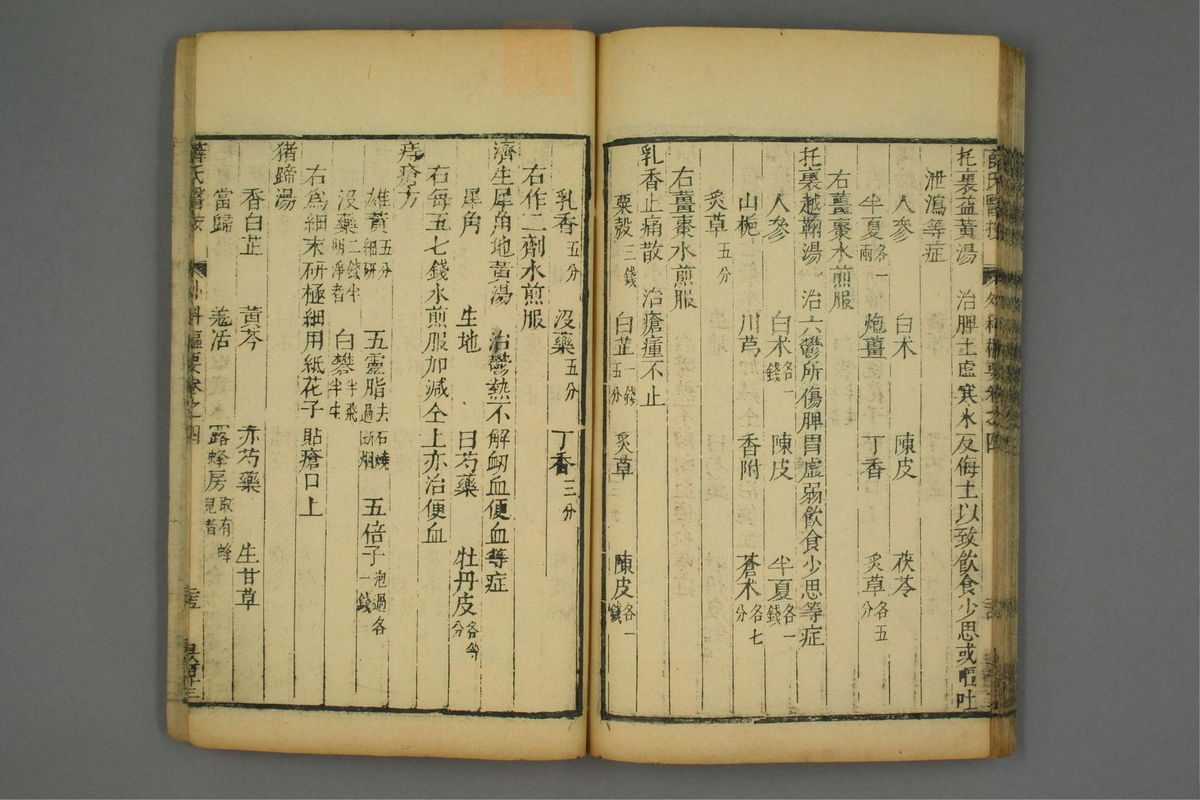 托裏益黃湯 治脾土虛寒水反侮土以致飲食少思或嘔吐
泄瀉等症
人參 白朮 陳皮 茯苓
半夏各一兩 炮薑 丁香 炙草各五分
右薑棗水煎服
托裏越鞠湯 治六鬱所傷脾胃虛弱飲食少思等症
人參 白朮各一錢 陳皮 半夏各一錢
山梔 川芎 香附 蒼朮各七分
炙草五分
右薑棗水煎服
乳香止痛散 治瘡瘇不止
粟殼三錢 白芷一錢五分 炙草 陳皮各一錢
乳香五分 沒藥五分 丁香三分
右作二劑水煎服
濟生犀角地黃湯 治鬱熱不解衂血便血等症
犀角 生地 白芍藥 牡丹皮各等分
右每五七錢水煎服加減仝上亦治便血
痔瘡方
雄黃五分細研 五靈脂去石燒過斷烟 五倍子泡過各一錢
沒藥二錢半明淨者 白礬半飛半生
右爲細末研極細用紙花子貼瘡口上
猪蹄湯
香白芷 黃芩 赤芍藥 生甘草
當歸 羗活 露蜂房取有蜂兒者
薛氏醫按 外科樞要卷之四